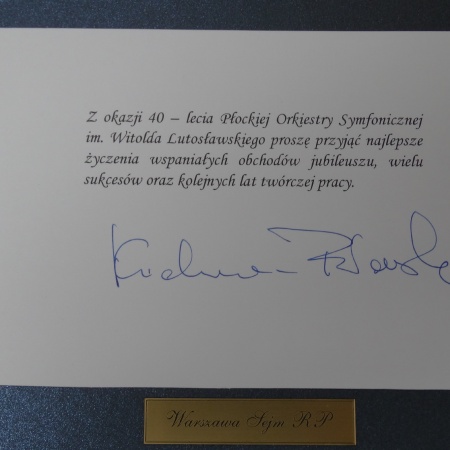 Z okazji 40 – lecia Płockiej Orkiestry Symfonicznej
im. Witolda Lutosławskiego proszę przyjąć najlepsze
życzenia wspaniałych obchodów jubileuszu, wielu
sukcesów oraz kolejnych lat twórczej pracy.
Warszawa Sejm RP